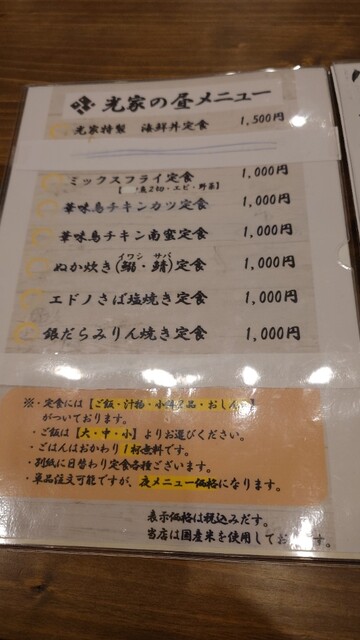 光家の昼メニュー
光家特製 海鮮丼定食 1,500円
ミックスフライ定食 1,000円
魚2切・エビ・野菜】
華味鳥チキンカツ定食 1,000円
華味鳥チキン南蛮定食 1,000円
イワシ サバ
ぬか炊き(鰯・鯖)定食 1,000円
エドノさば塩焼き定食 1,000円
銀だらみりん焼き定食 1,000円
※・定食には【ご飯・汁物・小鉢2品・おしん
がついております。
・ご飯は【大・中・小】よりお選びください。
・ごはんはおかわり1杯無料です。
・別紙に日替わり定食各種ございます。
・単品注文可能ですが、夜メニュー価格になります。
表示価格は税込みだす。
当店は国産米を使用してお